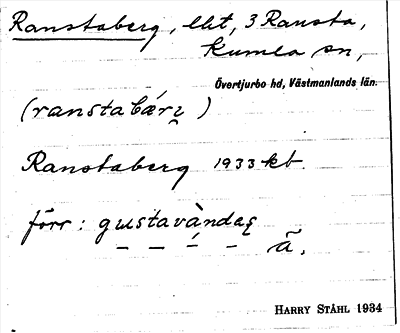 Ranstaberg, lht, 3 Ransta,
Kumla sn,
Övertjurbo hd, Västmanlands län.
(ranstabárɩ̨)
Ranstaberg 1933 kb.
förr: gustavàndaș
– – – – ã.
HARRY STÅHL 1934